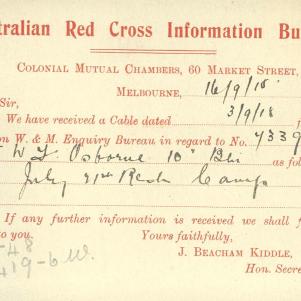 tralian Red Cross Information Bu
Colonial Mutual Chambers, 60 Market Street,
Melbourne, 16/9/18
Sir,
We have received a Cable dated 3/9/18
on W. & M. Enquiry Bureau in regard to No. 4339
W. Osborne 10" Bn as fol
July 21st Camp
If any further information is received we shall f
to you. Yours faithfully,
J. Beacham Kiddle,
Hon. Secre